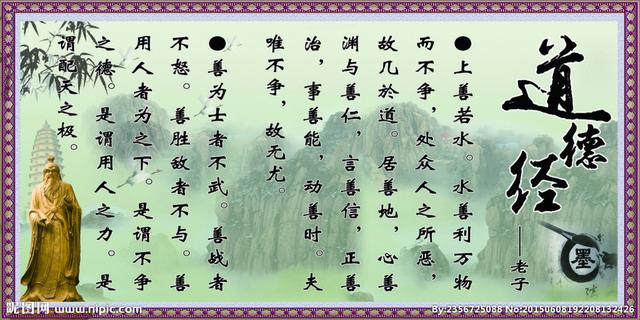 道德经
——老子
墨
●上善若水。水善利万物
而不争，处众人之所恶，
故几於道。居善地，心善
渊与善仁，言善信，正善
治，事善能，动善时。夫
唯不争，故无尤。
●善为士者不武。善战者
不怒。善胜敌者不与。善
用人者为之下。是谓不争
之德。是谓用人之力。是
谓配天之极。
昵图网 www.nipic.com
By:2356725088 No:20150608192208132426